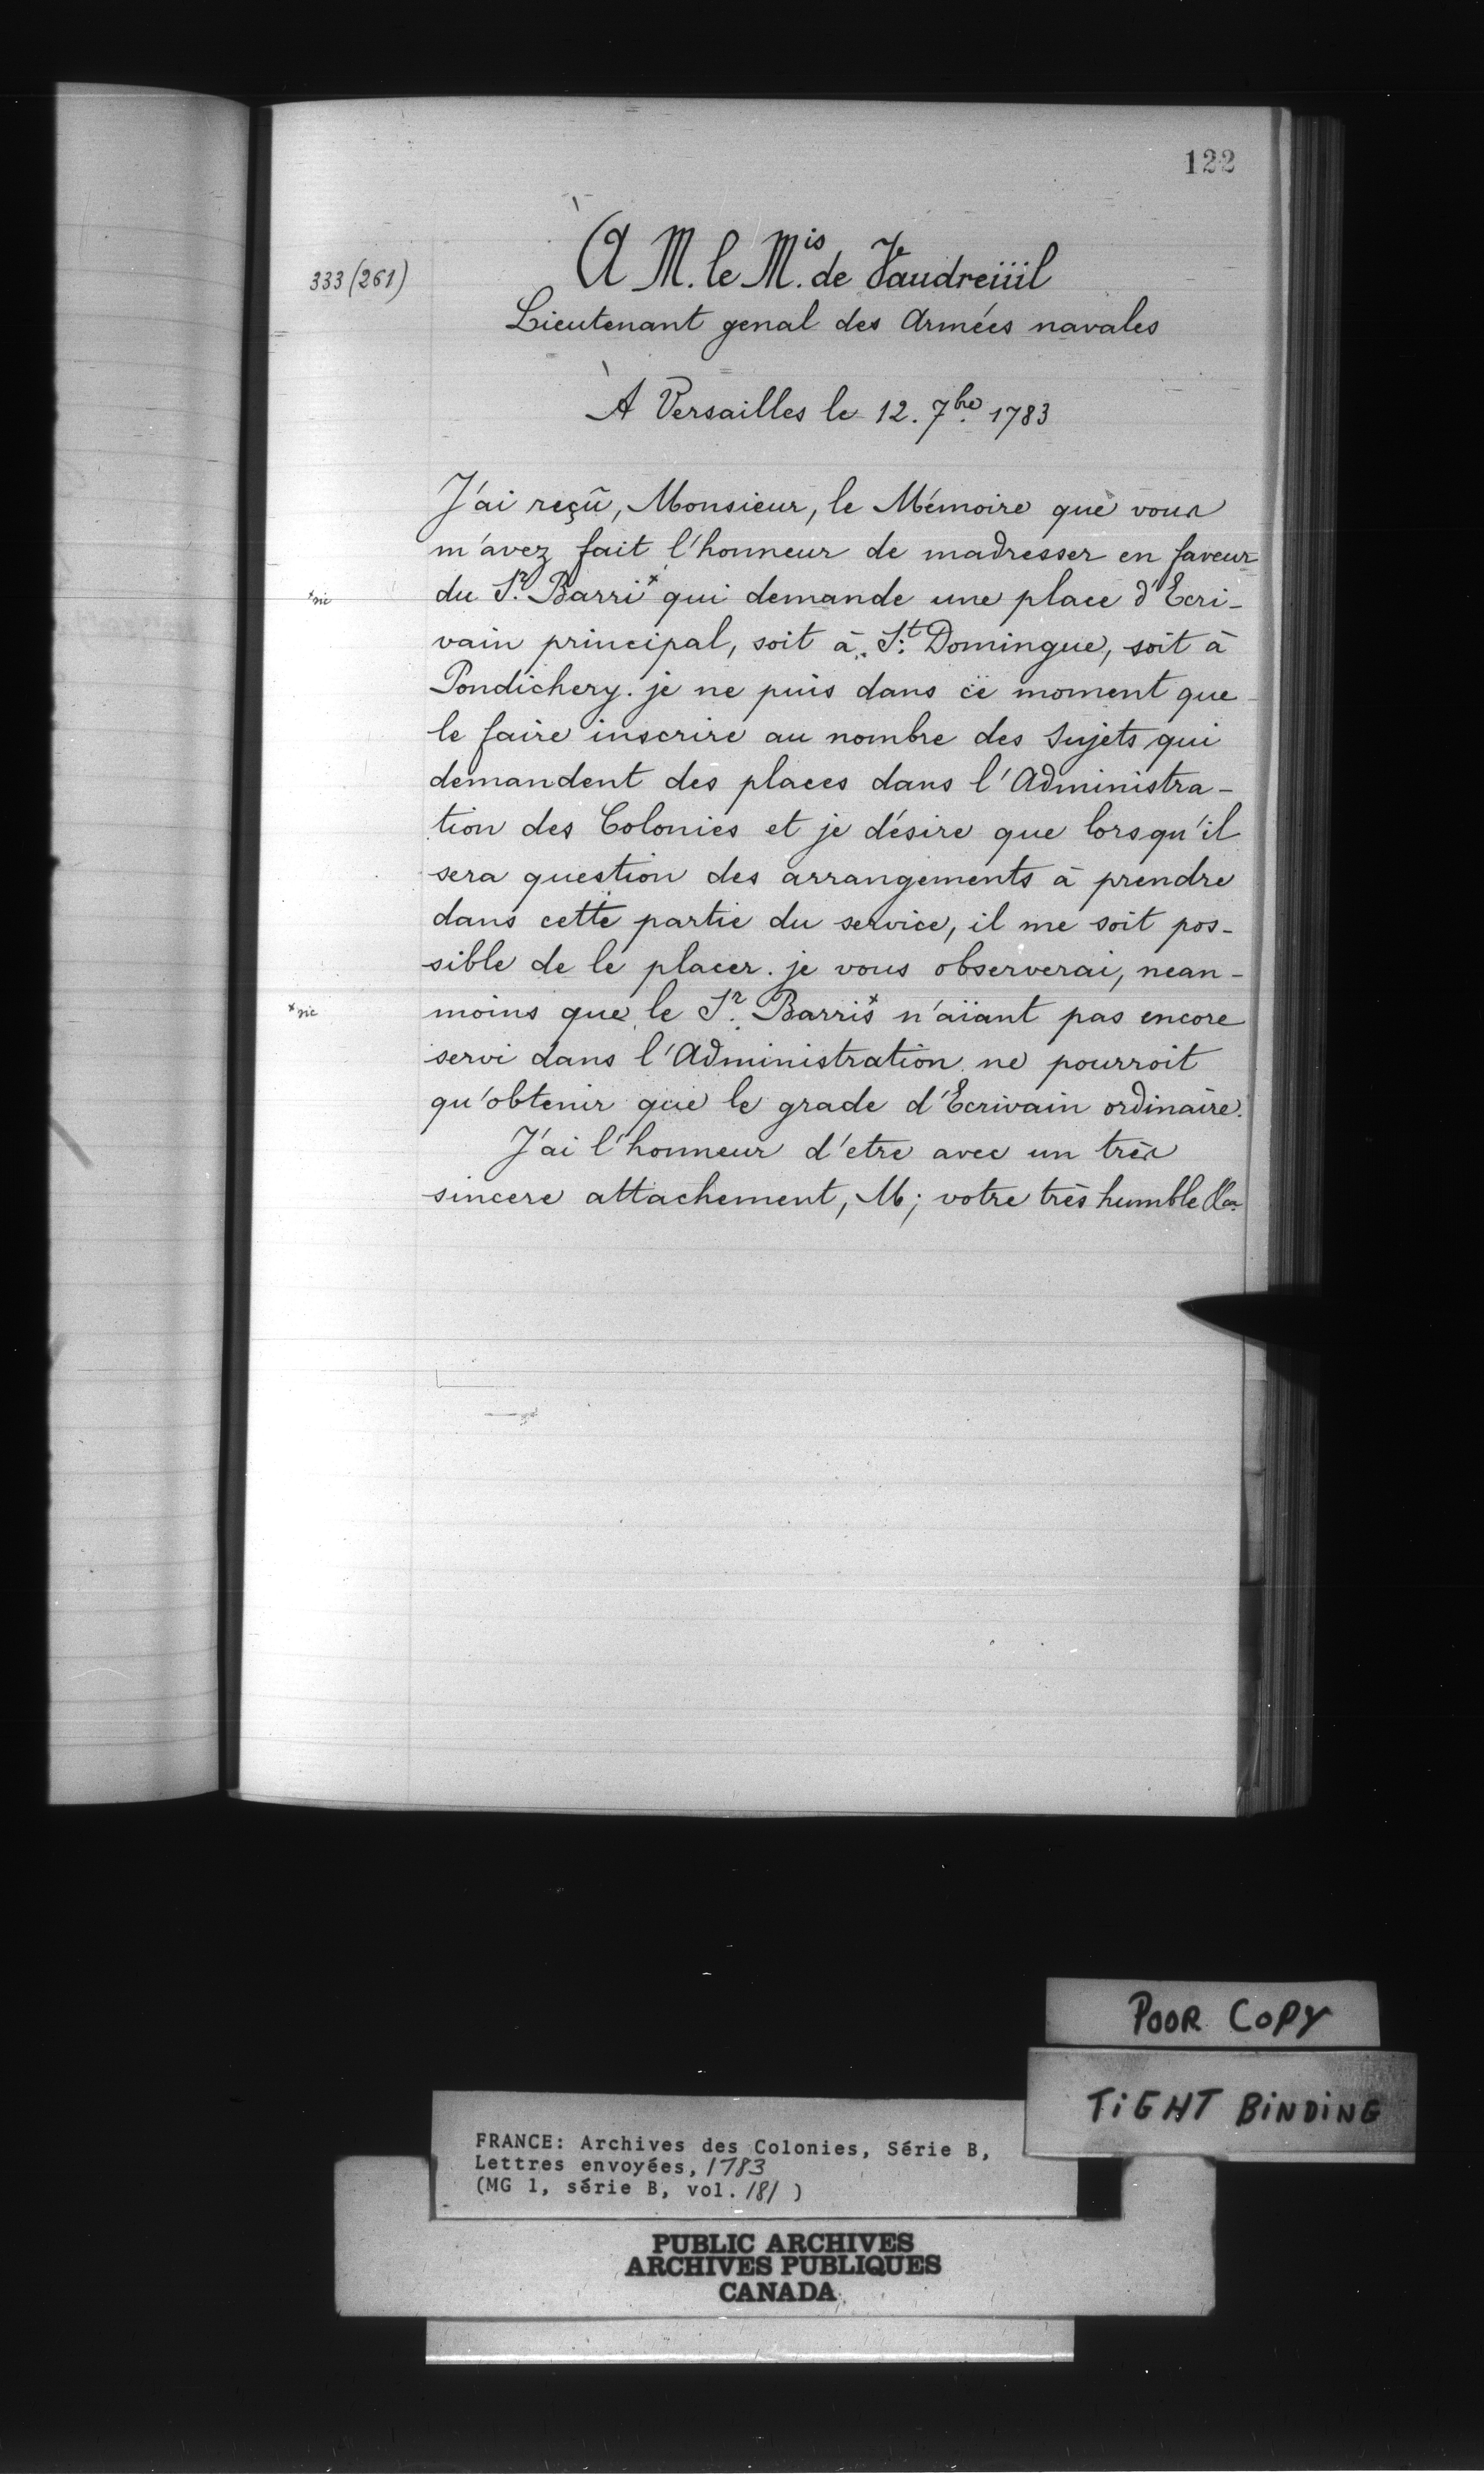 122
333 (261)
À M. le M.is de Vaudreüil
Lieutenant genal des Armées navales
À Versailles le 12. 7.bre 1783
J'ai reçû, Monsieur, le Mémoire que vous
m'avez fait l'honneur de madresser en faveur
*sic
du S.r Barri* qui demande une place d'Ecri-
vain principal, soit à S.t Domingue, soit à
Pondichery. je ne puis dans ce moment que
le faire inscrire au nombre des Sujets qui
demandent des places dans l'Administra-
tion des Colonies et je désire que lorsqu'il
sera question des arrangements à prendre
dans cette partie du service, il me soit pos-
sible de le placer. je vous observerai, nean-
*sic
moins que le S.r Barris* n'aïant pas encore
servi dans l'Administration ne pourroit
qu'obtenir que le grade d'Ecrivain ordinaire.
J'ai l'honneur d'etre avec un très
sincere attachement, M; votre très humble &a
POOR COPY
TIGHT BINDING
FRANCE: Archives des Colonies, Série B,
Lettres envoyées, 1783
(MG 1, série B, vol. 181 )
PUBLIC ARCHIVES
ARCHIVES PUBLIQUES
CANADA